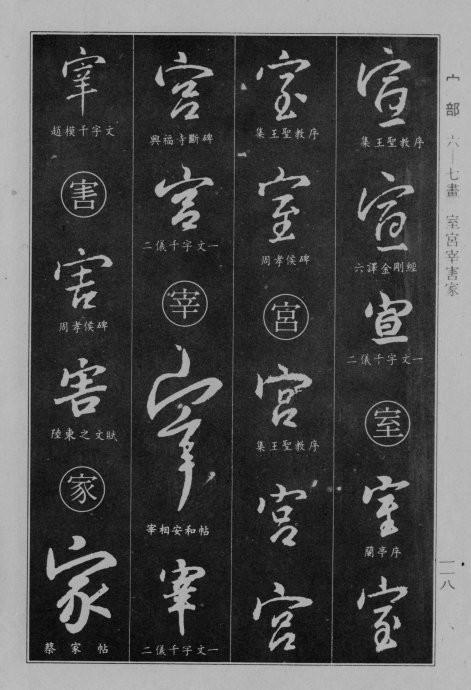 宀部 六—七畫 室宮宰害家
一一八
宣
集王聖教序
宣
六譯金剛經
宣
二儀千字文一
室
室
蘭亭序
室
室
集王聖教序
室
周孝侯碑
宮
宮
集王聖教序
宮
宮
宮
興福寺斷碑
宮
二儀千字文一
宰
宰
宰相安和帖
宰
二儀千字文一
宰
趙模千字文
害
害
周孝侯碑
害
陸東之文賦
家
家
蔡家帖